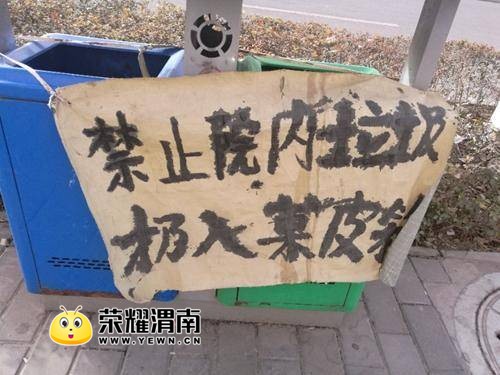 禁止院内垃圾
扔入菓皮
荣耀渭南
WWW.YEWN.CN